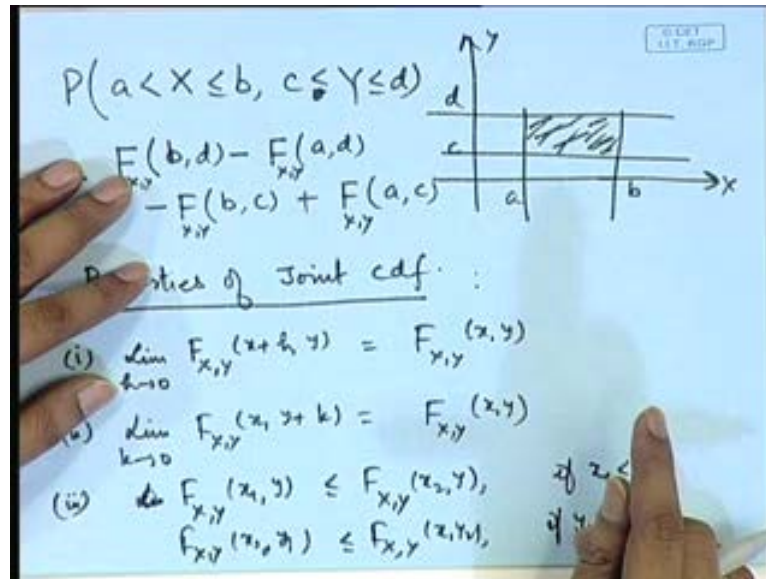 P(a < X ≤ b, c ≤ Y ≤ d)
F_{X,Y}(b,d) − F_{X,Y}(a,d)
− F_{X,Y}(b,c) + F_{X,Y}(a,c)
Y
d
c
a
b
X
of Joint cdf. :
(i) Lim_{h→0} F_{X,Y}(x+h, y) = F_{X,Y}(x,y)
Lim_{k→0} F_{X,Y}(x, y+k) = F_{X,Y}(x,y)
(iii) F_{X,Y}(x₁,y) ≤ F_{X,Y}(x₂,y), if x₁ <
F_{X,Y}(x, y₁) ≤ F_{X,Y}(x,y₂), if y₁